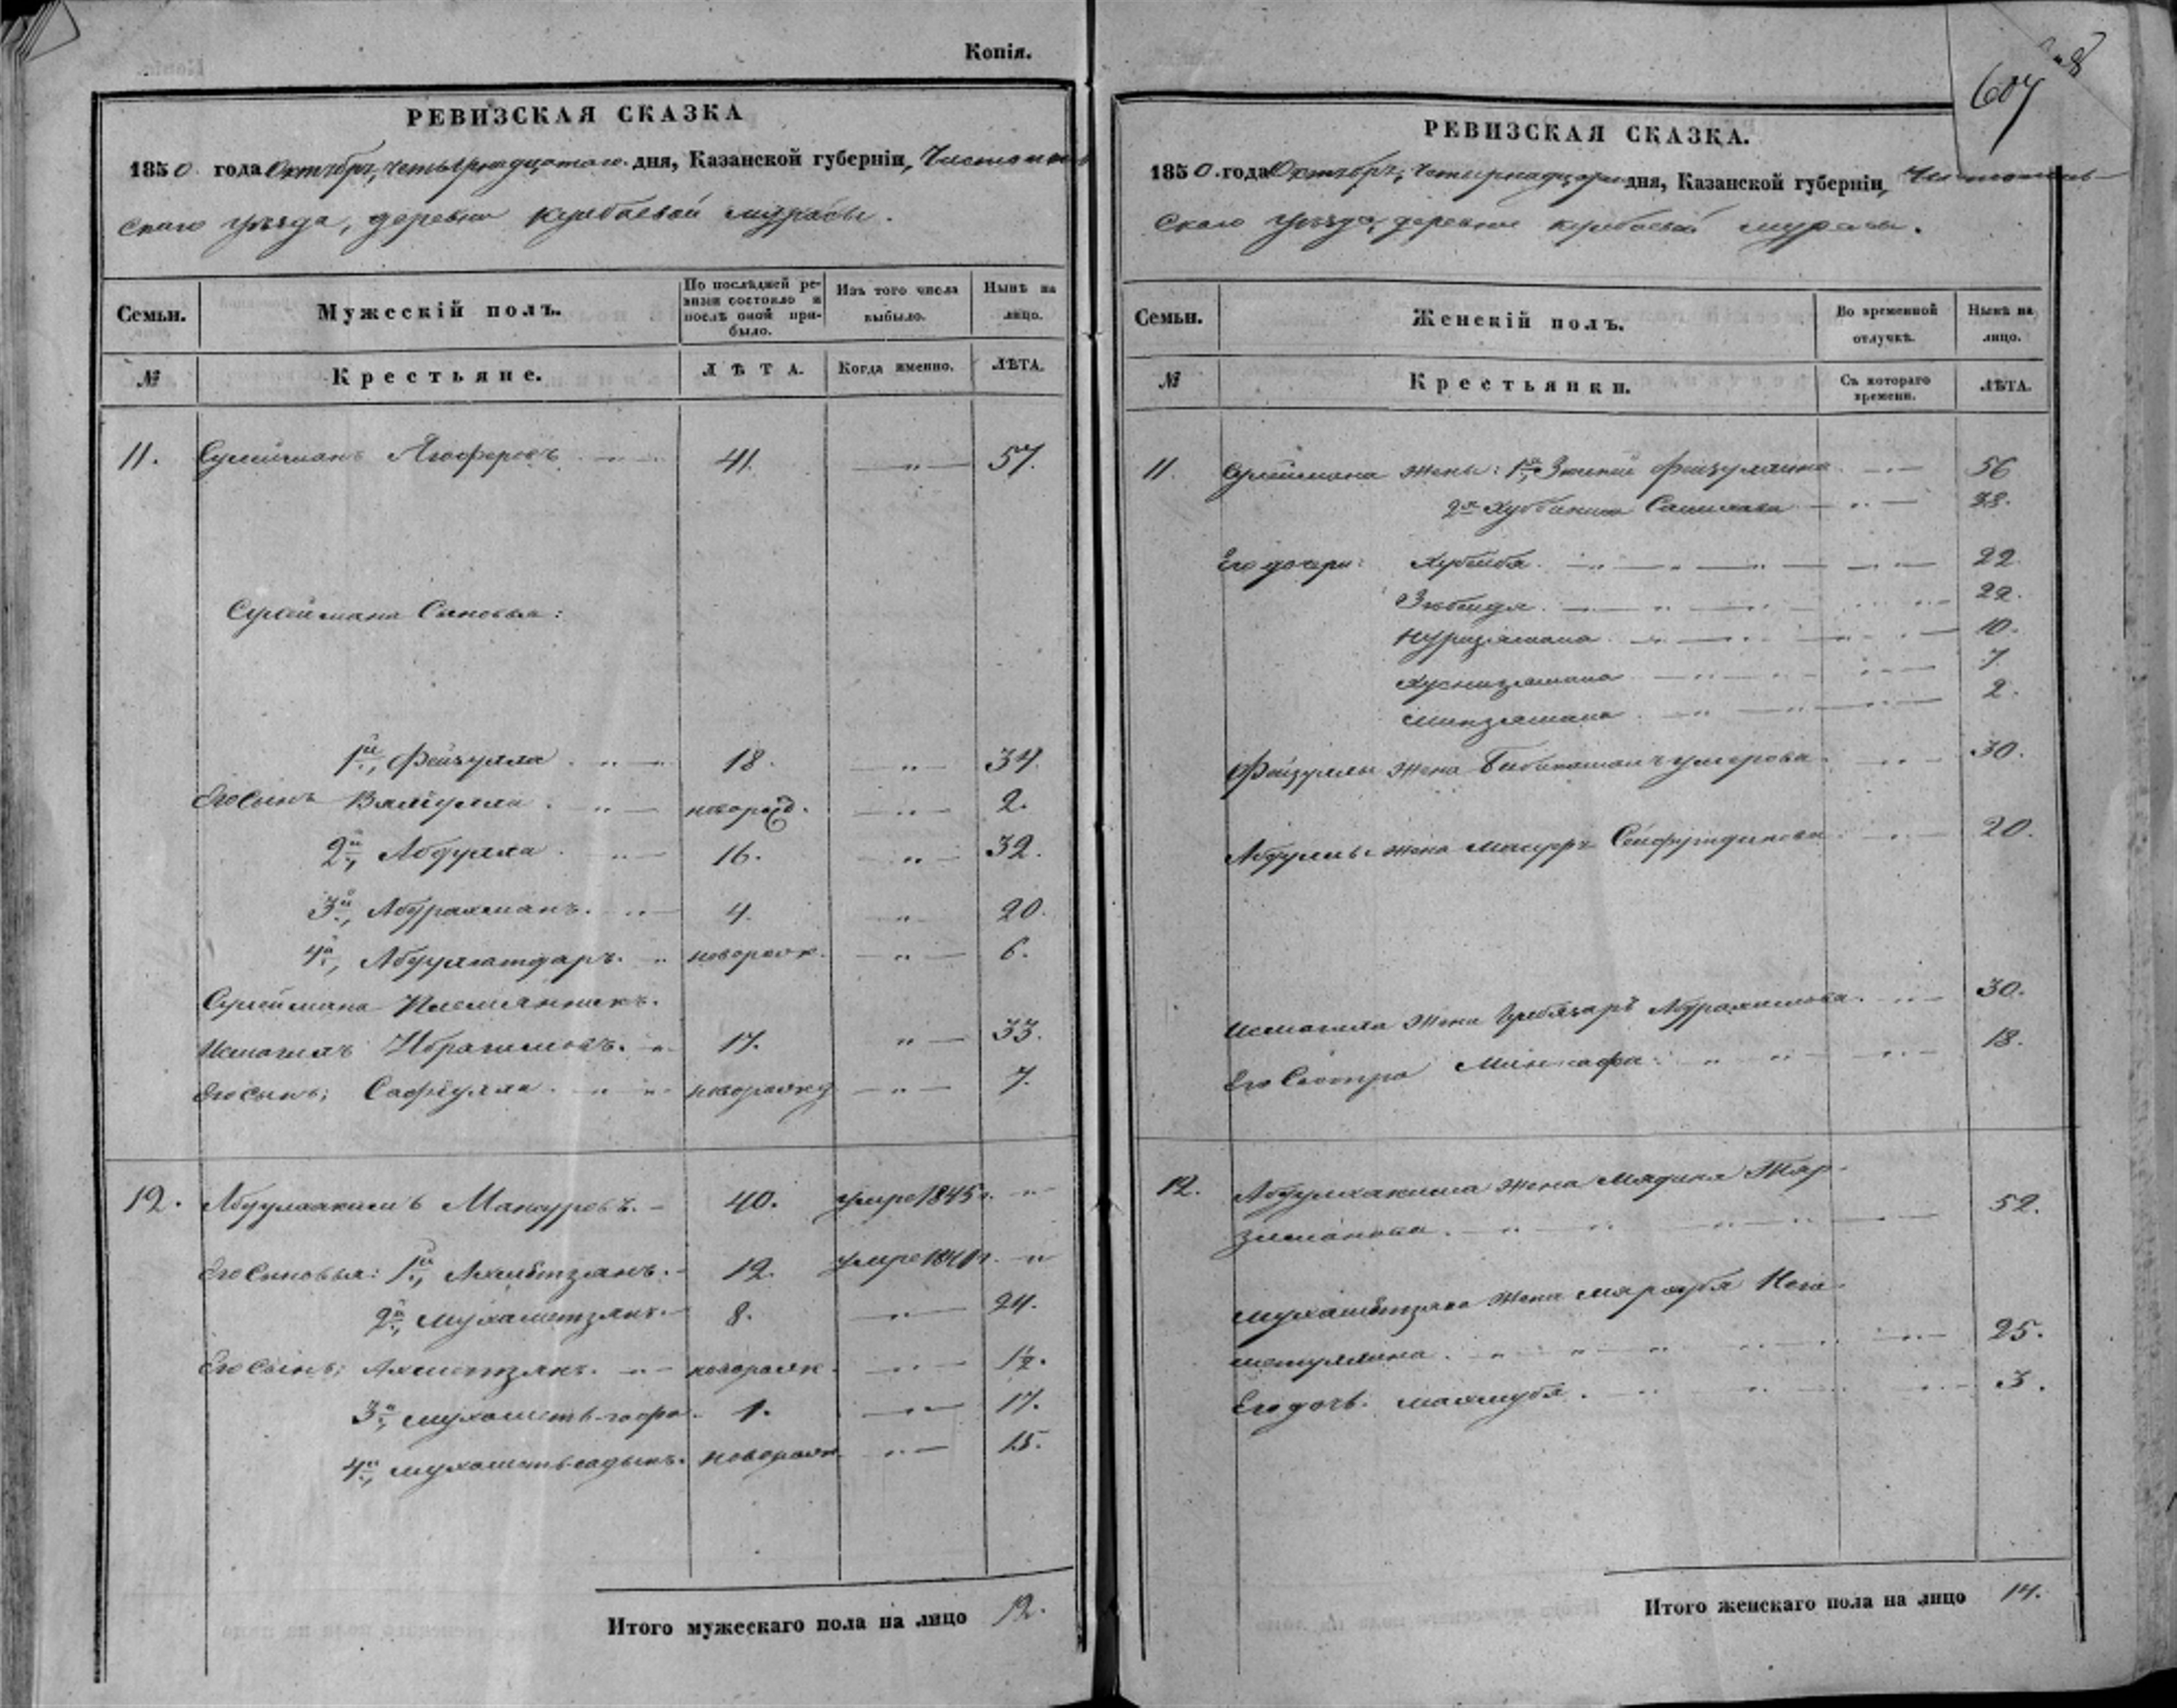 Копія.
РЕВИЗСКАЯ СКАЗКА
1850 года Октября, четырнадцатаго дня, Казанской губерніи, Чистополь
скаго уѣзда, деревни Кулбаевой Мурасы.
Семьи. Мужескій полъ. По послѣдней ре-
визіи состояло и
послѣ оной при-
было. Изъ того числа
выбыло. Нынѣ на
лицо.
№ Крестьяне. ЛѢТА. Когда именно. ЛѢТА.
11. Сулейманъ Ягоферовъ 41. „ 57.
Сулеймана Сыновья:
1й, Фейзулла 18. „ 34.
Его сынъ Валіулла новорожд. „ 2.
2й, Абдулла 16. „ 32.
3й, Абдрахманъ. 4. „ 20.
4й, новорож. „ 6.
Сулеймана Племянникъ.
Исмагилъ Ибрагимовъ. 17. „ 33.
Его сынъ; Сафіулла новорожд „ 7.
12. Абдулхакимъ Мансуровъ. 40. умре 1845 г. „
Его Сыновья: 1й, Ахметзянъ. 12. умре „
2й, Мухаметзянъ. 8. „ 24.
Его Сынъ; Ахметзянъ. новорож. „ 1½.
3й, 1. „ 17.
4й, Мухаметь-садыкъ. новорож. „ 15.
Итого мужескаго пола на лицо 12.
607
РЕВИЗСКАЯ СКАЗКА.
1850. года Октября, четырнадцатаго дня, Казанской губерніи, Чистополь-
скаго уѣзда, деревни Кулбаевой Мурасы.
Семьи. Женскій полъ. Во временной
отлучкѣ. Нынѣ на
лицо.
№ Крестьянки. Съ котораго
времени. ЛѢТА.
11. Сулеймана жены: 1я, Фейзуллина 56
2я 38.
Его дочери: Хубейба 22.
Зюбейда 22.
Нуризямана 10.
Хуснизямана 7.
Минзямана 2.
Фейзуллы жена 30.
Абдуллы жена Сейфутдинова 20.
Исмагила жена Абдрахимова 30.
Его Сестра 18.
12. Абдулхакима жена Мядиня
52.
Мухаметзяна жена
25.
Его дочь 3.
Итого женскаго пола на лицо 14.